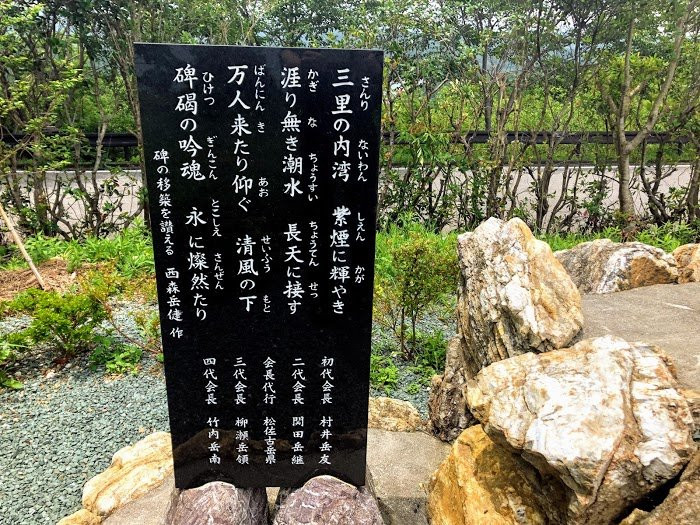 三里の内湾 紫煙に輝やき
さんり ないわん しえん かが
涯り無き潮水 長天に接す
かぎ な ちょうすい ちょうてん せっ
万人来たり仰ぐ 清風の下
ばんにん き あお せいふう もと
碑碣の吟魂 永に燦然たり
ひけつ ぎんこん とこしえ さんぜん
碑の移築を讃える 西森岳健 作
初代会長 村井岳友
二代会長 関田岳継
会長代行 松佐古岳県
三代会長 柳瀬岳領
四代会長 竹内岳南